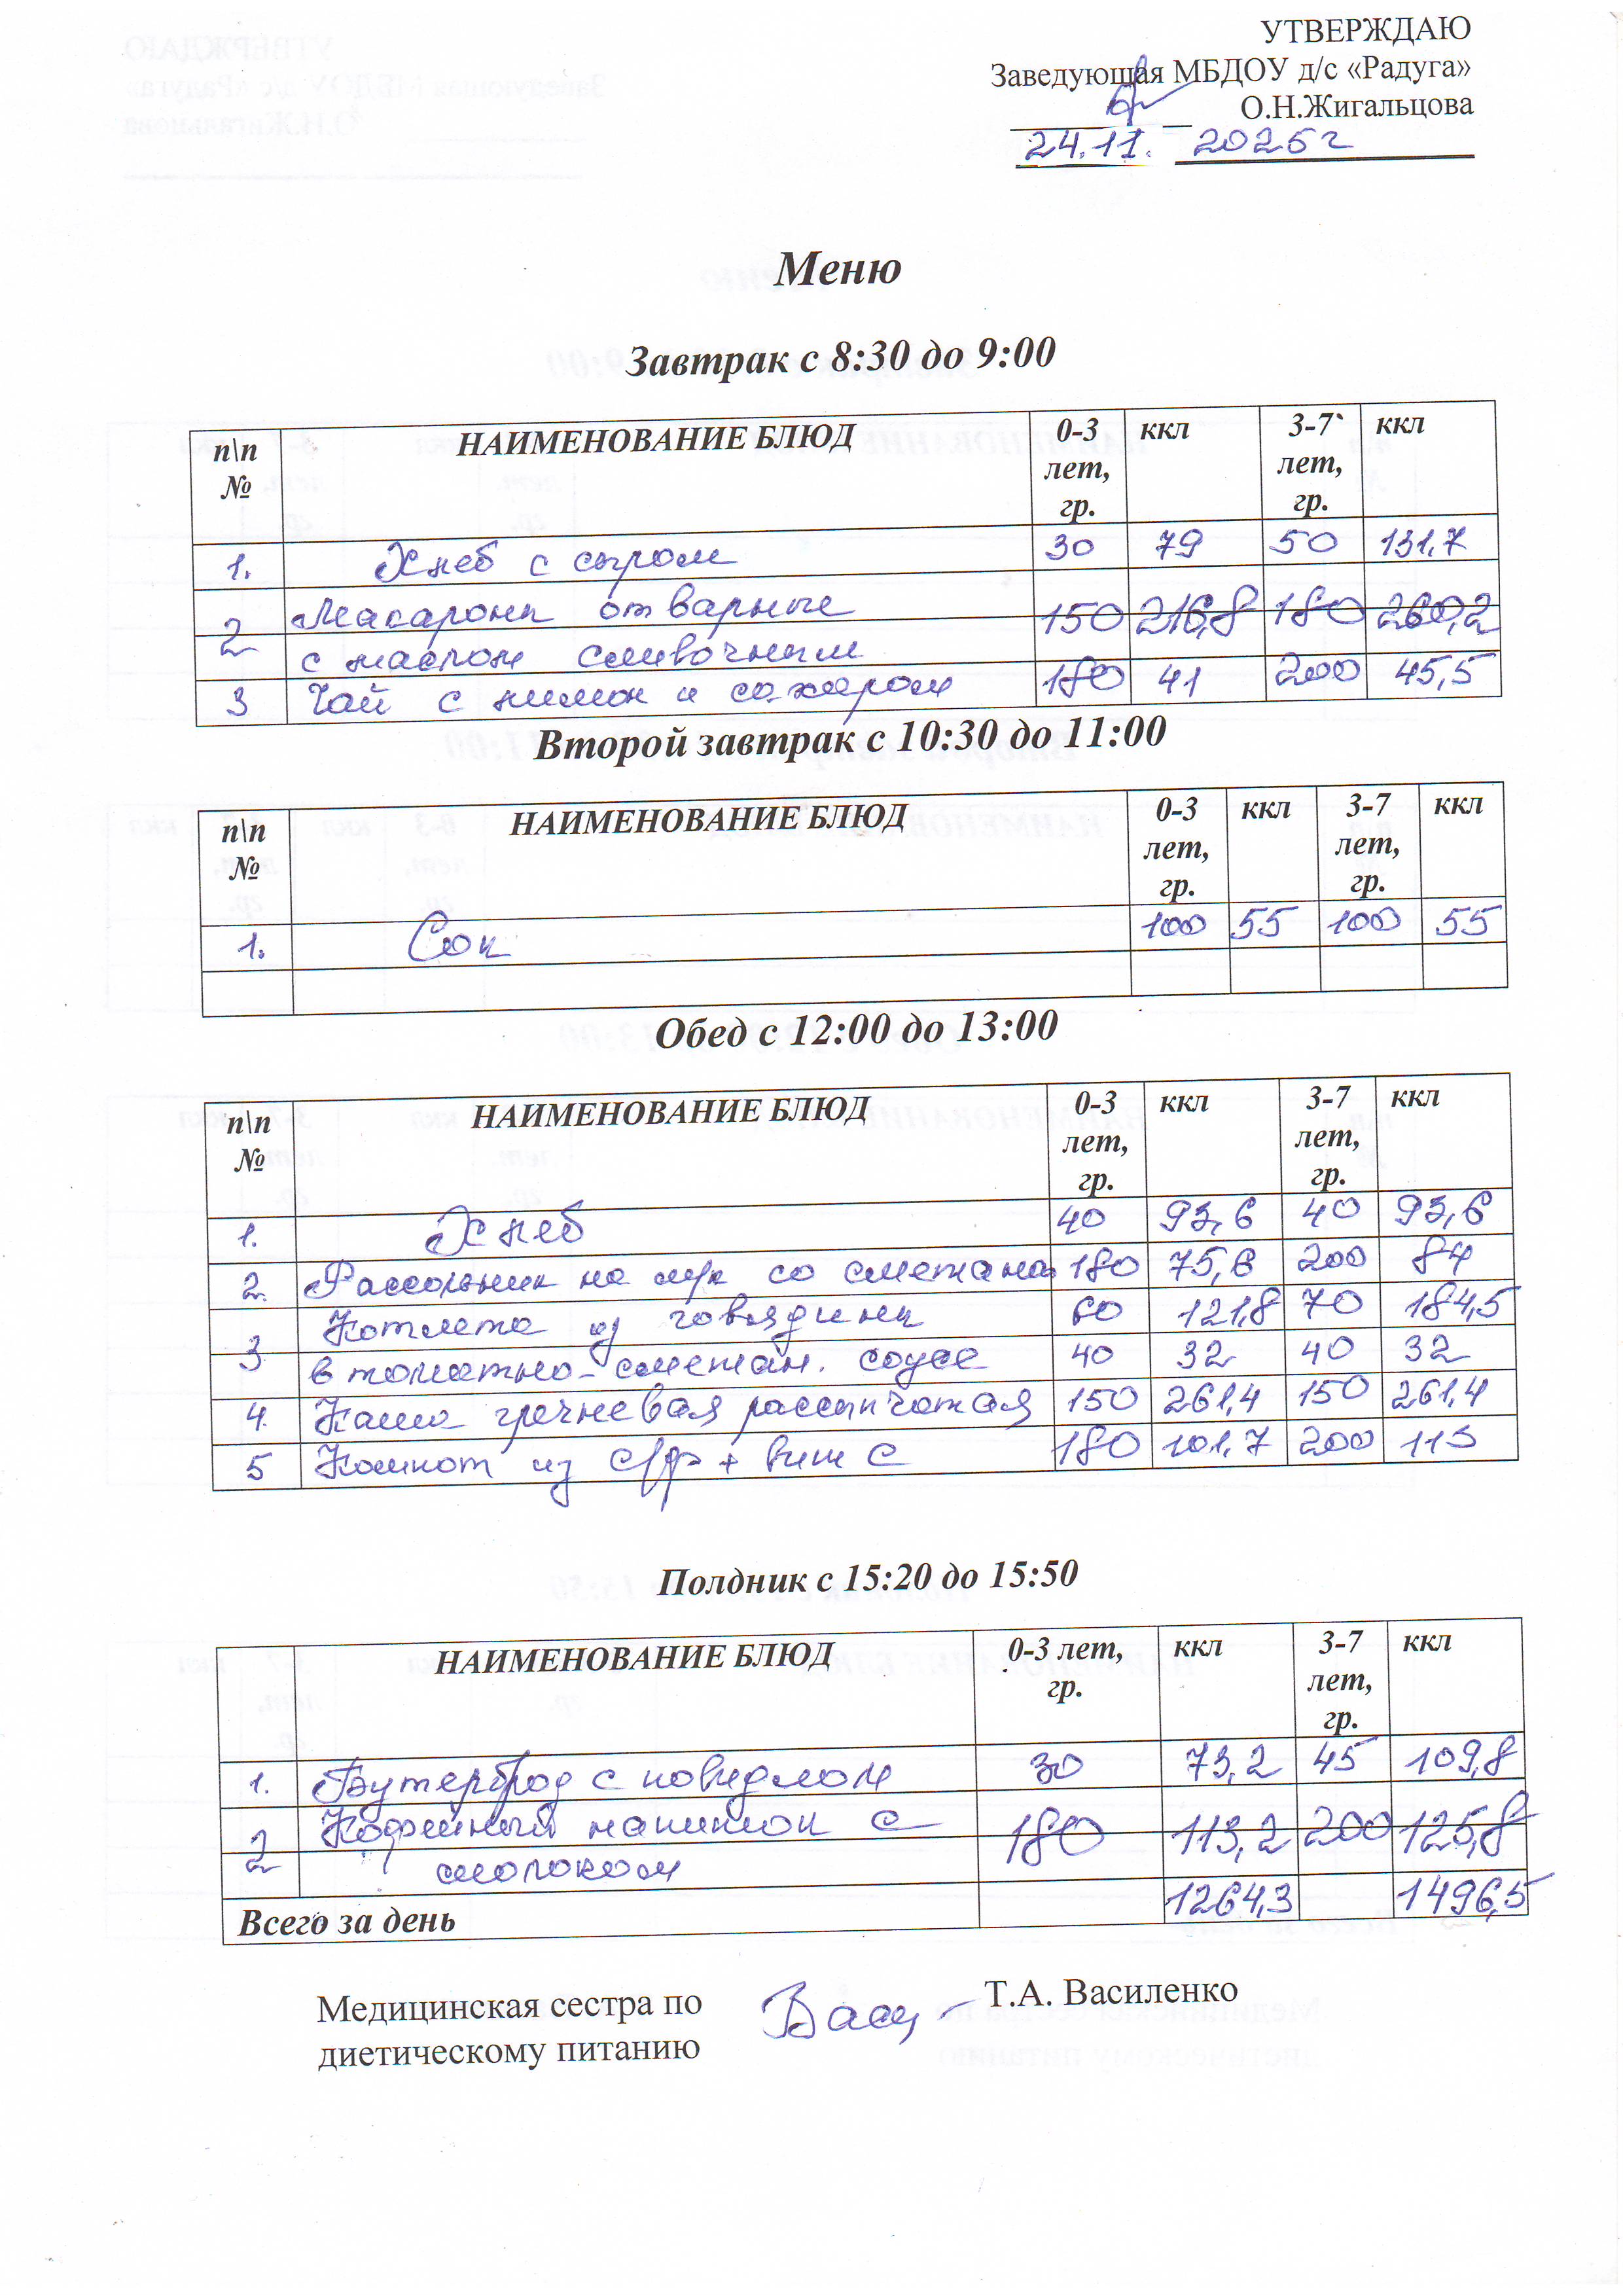 УТВЕРЖДАЮ
Заведующая МБДОУ д/с «Радуга»
О.Н.Жигальцова
24.11. 2025г
Меню
Завтрак с 8:30 до 9:00
п\п № НАИМЕНОВАНИЕ БЛЮД 0-3 лет, гр. ккл 3-7 лет, гр. ккл
1. Хлеб с сыром 30 79 50 131,7
2 Макароны отварные 150 216,8 180 260,2
с маслом сливочным
3 Чай с лимон и сахаром 180 41 200 45,5
Второй завтрак с 10:30 до 11:00
п\п № НАИМЕНОВАНИЕ БЛЮД 0-3 лет, гр. ккл 3-7 лет, гр. ккл
1. Сок 100 55 100 55
Обед с 12:00 до 13:00
п\п № НАИМЕНОВАНИЕ БЛЮД 0-3 лет, гр. ккл 3-7 лет, гр. ккл
1. Хлеб 40 93,6 40 93,6
2. Рассольник на м/к со сметаной 180 75,6 200 84
3 Котлета из говядины 60 121,8 70 184,5
в томатно-сметан. соусе 40 32 40 32
4. Каша гречневая рассыпчатая 150 261,4 150 261,4
5 Компот из с/ф + вит С 180 101,7 200 113
Полдник с 15:20 до 15:50
НАИМЕНОВАНИЕ БЛЮД 0-3 лет, гр. ккл 3-7 лет, гр. ккл
1. Бутерброд с повидлом 30 73,2 45 109,8
2 Кофейный напиток с 180 113,2 200 125,8
молоком
Всего за день 1264,3 1496,5
Медицинская сестра по Т.А. Василенко
диетическому питанию